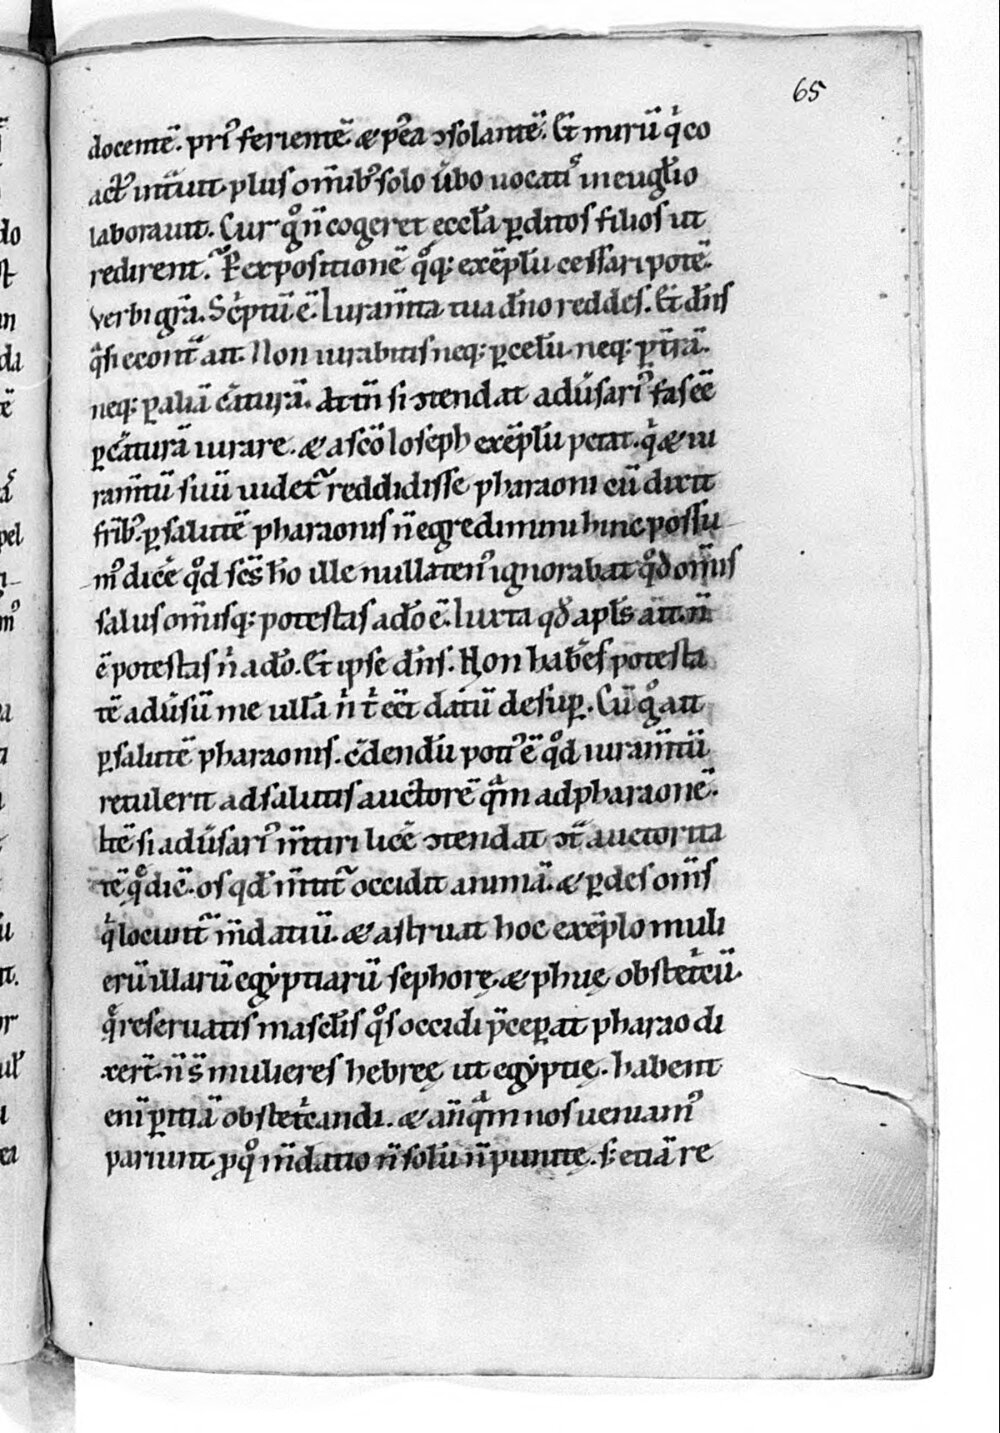 65
docentē. pri᷒ ferientē. & p̄ea ↄsolantē. Et mirū q̇ co
act᷒ intᷓuit. plus omībꝰ solo ūbo uocatᷣ in eugłio
laborauit. Cur g̊ ñ cogeret eccła ꝑditos filios ut
redirent. Per expositionē q̊q; exēpłū cessari potē.
verbi grā. Sc̓ptū ē. Iuramta tua dño reddes. Et dñs
q̈si econtᷓ ait. Non iurabitis neq; ꝑ celū. neq; ꝑ tr̄ā.
neq; ꝑ aliā c̓aturā. At tñ si ↄtendat adūsariꝰ fas eē
ꝑ c̓aturā iurare. & a sc̄o Ioseph exēpłū petat. q̇ & iu
ramtū suū uidetᷣ reddidisse pharaoni cū dixit
frībꝰ. ꝑ salutē pharaonis ñ egredimini hinc possu
mꝰ dic̓e q̊d sc̄s ħo ille nullatenꝰ ignorabat q̊d omīs
salus omīsq; potestas a dō ē. Iuxta qđ apłs ait. ñ
ē potestas n̓ a dō. Et ipse dñs. Non hab̓es potesta
tē adūsū me ullā n̓ t̓ eēt datū desuꝑ. Cū g̊ ait
ꝑ salutē pharaonis. c̓dendū potiꝰ ē q̊d iuramtū
retulerit ad salutis auctorē qᷓm ad pharaonē.
Itē si adūsariꝰ m̄tiri licē ↄtendat ↄtᷓ auctorita
tē q̊ diē. os qđ m̄titᷣ occidit animā. & ꝑdes omīs
q̇ locuntᷣ m̄datiū. & astruat hoc exēplo muli
erū illarū egẏptiarū sephorę & phuę obstet̓cū
q̊ reseruatis mascłis q̊s occidi p̄ceꝑat pharao di
xert̄. ñ s̄ mulieres hebrę ut egẏptię. habent
enī ꝑitiā obstet̓candi. & an̄qᷓm nos ueniamꝰ
pariunt. ꝓ q̊ m̄datio ñ solū ñ punitę. s; etiā re